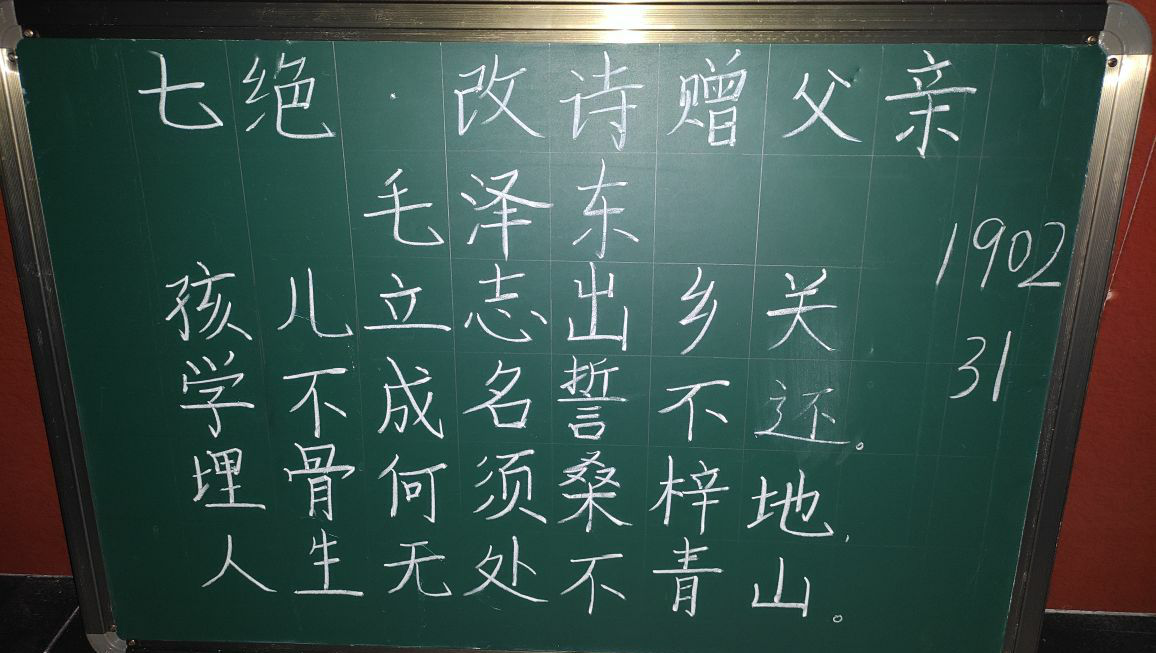 七绝·改诗赠父亲
毛泽东
1902
孩儿立志出乡关
31
学不成名誓不还。
埋骨何须桑梓地,
人生无处不青山。